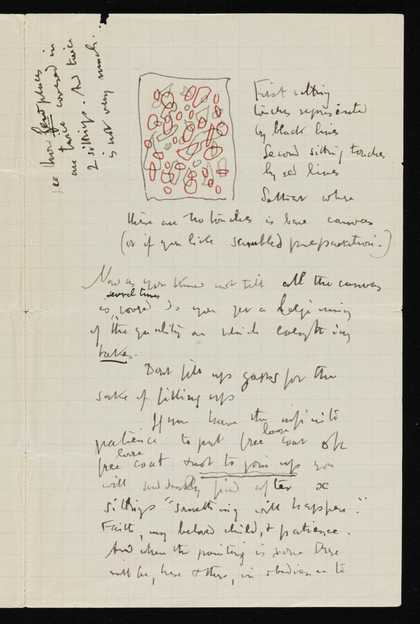 see how few places
twice covered in
one sittings. And twice
2 sittings
is not very much.
First sitting
touches represented
by black lines
Second sitting touches
by red lines
where
there are no touches is bare canvas
(or if you like scumbled preparation.)
Now as you know not till all the canvas
several times
is covered do you get a beginning
of the quality on which everything
takes.
Dont fill up gaps for the
sake of filling up
If you have the infinite
patience to put free loose coat on
free loose coat & not to join up you
will suddenly find after x
sittings "something will happen."
Faith, my beloved child, & patience.
And when the painting is done there
will be, here & there, in obedience to